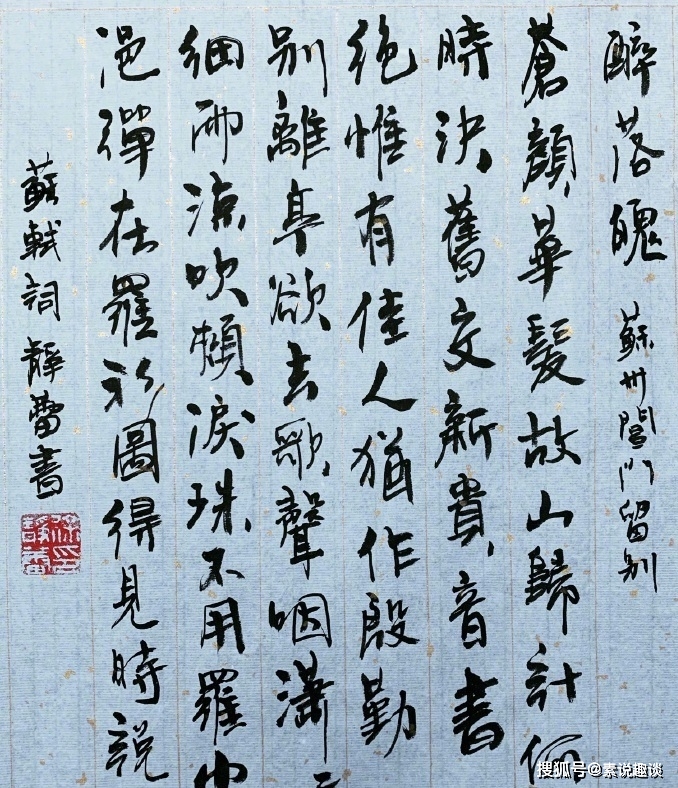 醉落魄 蘇州閶門留别
蒼顔華髮故山歸計何
時決舊交新貴音書
絶惟有佳人猶作殷勤
别離亭欲去歌聲咽瀟
細雨涼吹頰淚珠不用羅巾
浥彈在羅衫圖得見時説
蘇軾詞 靜蕾書
搜狐号@素说趣谈